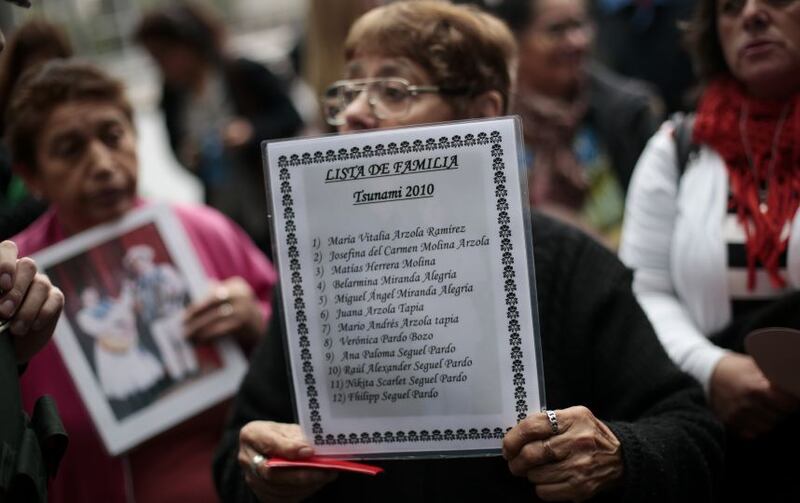 LISTA DE FAMILIA
Tsunami 2010
1) María Vitalia Arzola Ramírez
2) Josefina del Carmen Molina Arzola
3) Matías Herrera Molina
4) Belarmina Miranda Alegría
5) Miguel Ángel Miranda Alegría
6) Juana Arzola Tapia
7) Mario Andrés Arzola tapia
8) Verónica Pardo Bozo
9) Ana Paloma Seguel Pardo
10) Raúl Alexander Seguel Pardo
11) Nikita Scarlet Seguel Pardo
12) Fhilipp Seguel Pardo